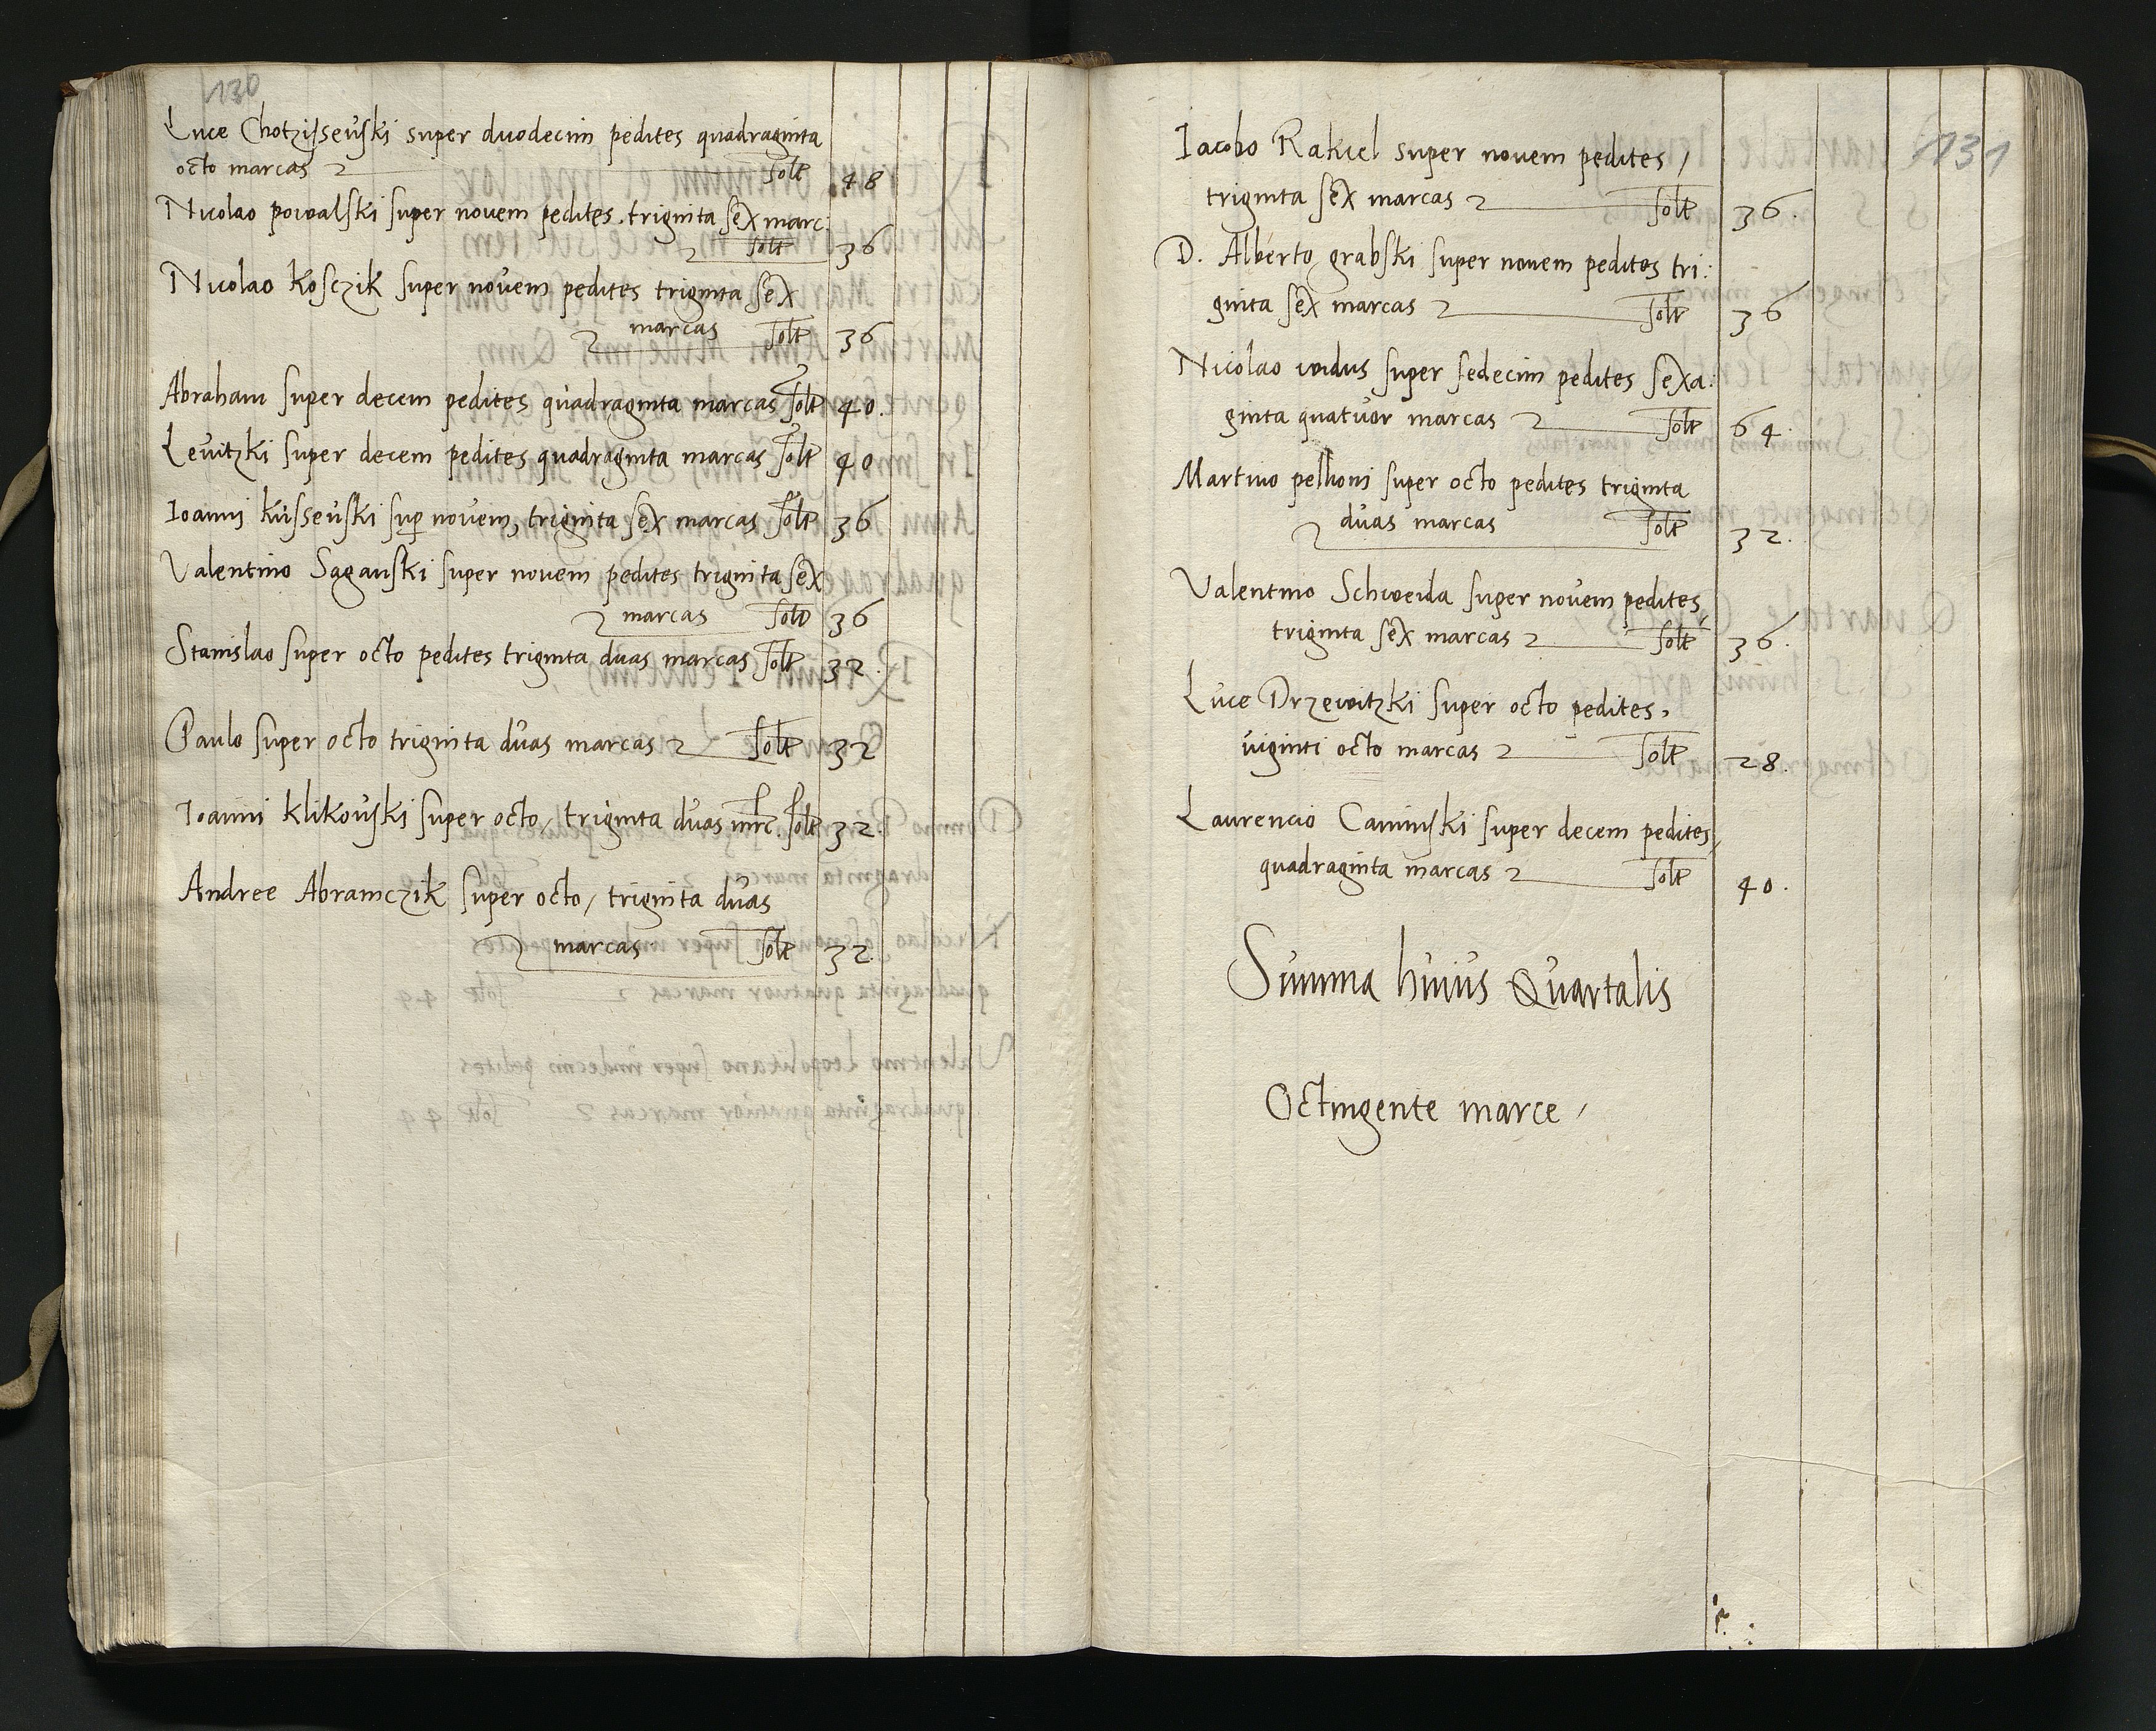 130
Luce Chotzisseuski super duodecim pedites quadraginta
octo marcas solt 48
Nicolao powalski super novem pedites. triginta sex marc.
solt 36
Nicolao Kosczik super novem pedites triginta sex
marcas solt 36
Abraham super decem pedites quadraginta marcas solt 40.
Levitzki super decem pedites quadraginta marcas solt 40
Ioanni Kusseuski sup novem, triginta sex marcas solt 36
Valentino Saganski super novem pedites triginta sex
marcas solt 36
Stanislao super octo pedites triginta duas marcas solt 32.
Paulo super octo triginta duas marcas solt 32
Ioanni Klikouski super octo, triginta duas mrc. solt 32.
Andree Abramczik super octo, triginta duas
marcas solt 32.
131
Iacobo Rakiel super novem pedites,
triginta sex marcas solt 36.
D. Alberto grabski super novem pedites tri:
ginta sex marcas solt 36
Nicolao vidus super sedecim pedites sexa:
ginta quatuor marcas solt 64.
Martino pellioni super octo pedites triginta
duas marcas solt 32.
Valentino Schweida super novem pedites,
triginta sex marcas solt 36.
Luce Drzewitzki super octo pedites,
viginti octo marcas solt 28.
Laurencio Caminski super decem pedites,
quadraginta marcas solt 40.
Summa huius Quartalis
Octingente marce,